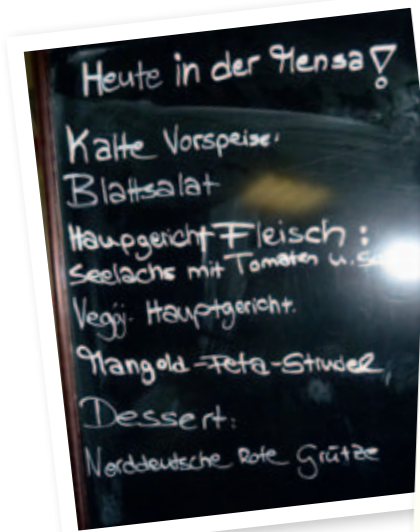 Heute in der Mensa!
Kalte Vorspeise:
Blattsalat
Haupgericht Fleisch:
Seelachs mit Tomaten u.
Veggi. Hauptgericht.
Mangold-Feta-Strudel
Dessert:
Norddeutsche Rote Grütze